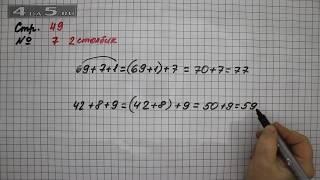 4 ДА 5.RU
Стр. 49
№ 7 2 столбик
69+7+1=(69+1)+7=70+7=77
42+8+9=(42+8)+9=50+9=59